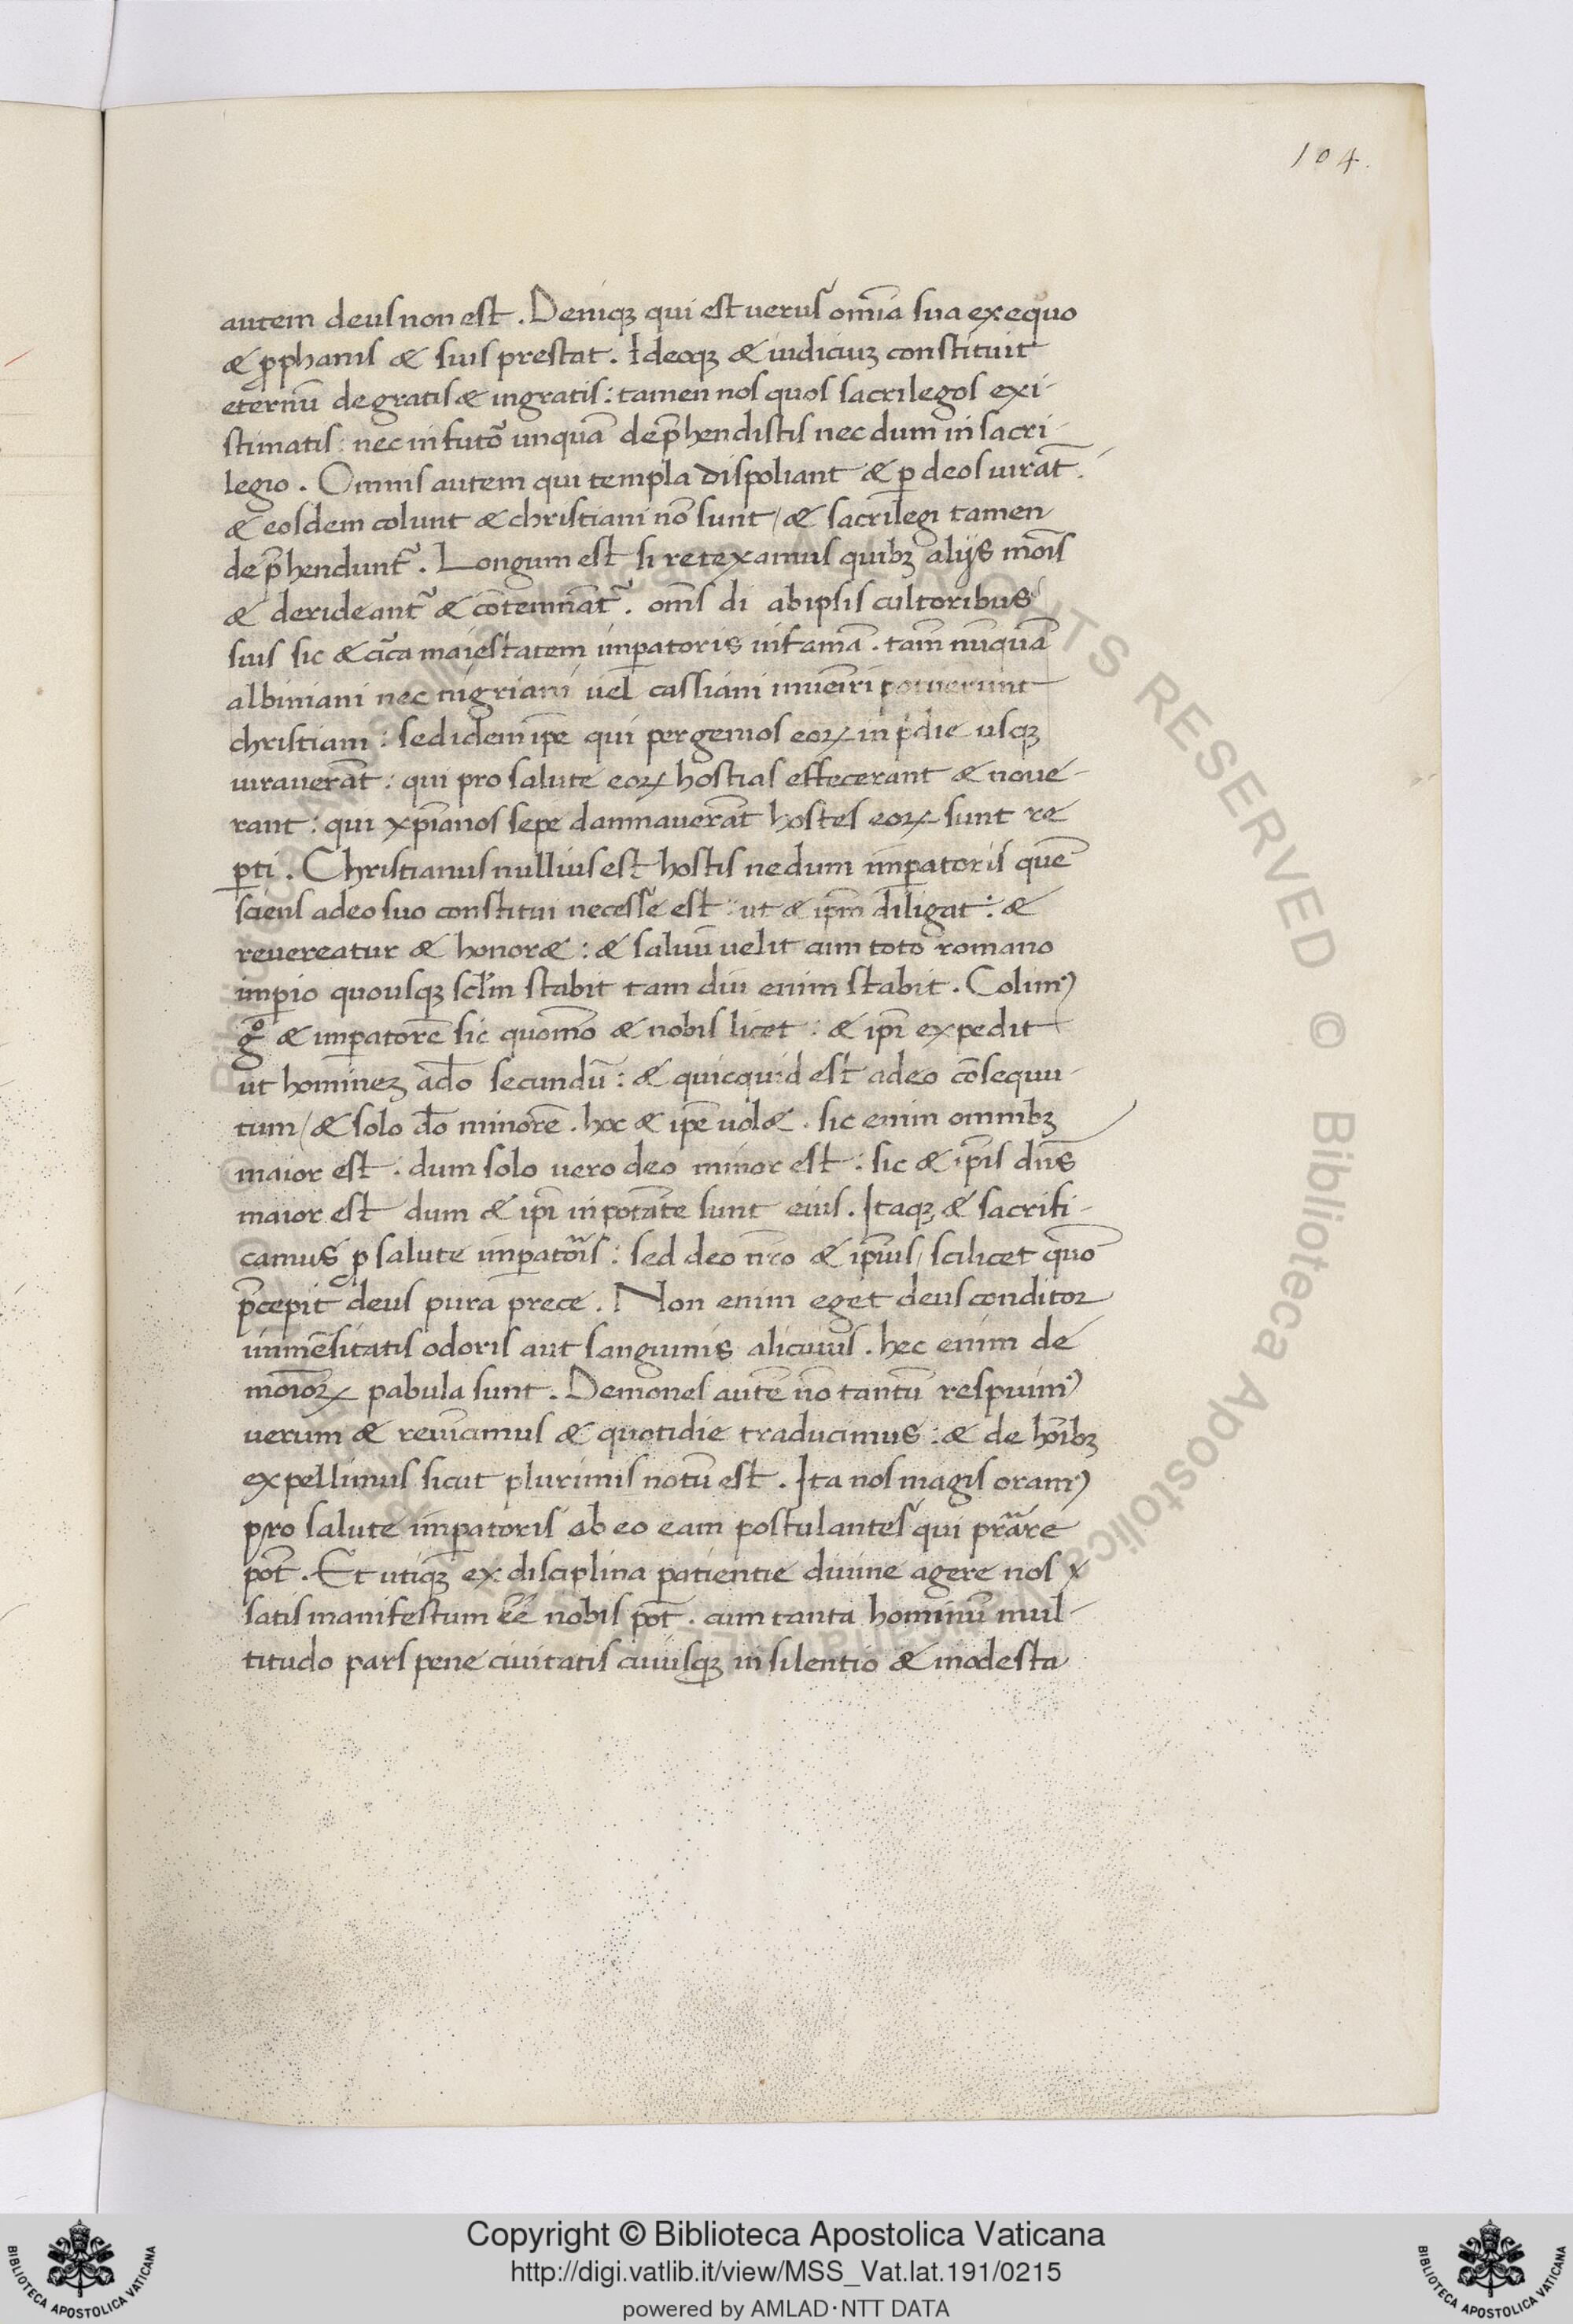 104.
autem deus non est. Deniq; qui est verus omīa sua ex equo
& ꝓphanis & suis prestat. Ideoq; & iudiciuz constituit
eternū de gratis & ingratis: tamen nos quos sacrilegos exi-
stimatis: nec in furto unquā dep̄hendistis nec dum in sacri-
legio. Omnis autem qui templa dispoliant & ꝑ deos iurāt.
& eosdem colunt & christiani nō sunt / & sacrilegi tamen
dep̄hendunt᷑. Longum est si retexamus quib; alijs mōis
& derideant᷑ & cōtemnāt᷑. oms̄ di ab ipsis cultoribus
suis sic & cīca maiestatem imꝑatoris infamā. tam̄ nūquā
albiniani nec nigriani vel cassiani inueīri potuerunt
christiani: sed idem ip̄e qui per genios eoꝝ in p̍die usq;
iurauerāt: qui pro salute eoꝝ hostias effecerant & noue-
rant: qui xp̄ianos sepe damnauerāt hostes eoꝝ sunt re
ꝑti. Christianus nullius est hostis nedum imꝑatoris quē
sciens adeo suo constitui necesse est: ut & ip̄m diligat: &
reuereatur & honor&: & saluū velit cum toto romano
imꝑio quousq; scl̄m stabit tam diu enim stabit. Colim᾽
gͦ & imꝑatorē sic quomō & nobis licet: & ip̄i expedit
ut hominez ad̄o secundū: & quicquid est adeo cōsequu-
tum / & solo d̄o minorē. hoc & ip̄e uol&. sic enim omnib;
maior est. dum solo vero deo minor est: sic & ip̄is dn̄s
maior est dum & ip̄i in potāte sunt eius. Itaq; & sacrifi-
camus ꝓ salute imꝑatoīs: sed deo nr̄o & ip̄ius / scilicet quō
p̄cepit deus pura prece. Non enim eget deus conditor
immēsitatis odoris aut sanguinis alicuius. hec enim de
moīoꝝ pabula sunt. Demones autē nō tantū respuim᾽
uerum & reuīcimus & quotidie traducimus: & de hoīb;
expellimus sicut plurimis notū est. Ita nos magis oram᾽
pro salute imꝑatoris ab eo eam postulantes qui pr̄are
pōt. Et utiq; ex disciplina patientie diuine agere nos
satis manifestum ēē nobis pōt. cum tanta hominū mul-
titudo pars pene ciuitatis cuiusq; in silentio & modesta
Biblioteca Apostolica Vaticana ALL RIGHTS RESERVED ©
Copyright © Biblioteca Apostolica Vaticana
http://digi.vatlib.it/view/MSS_Vat.lat.191/0215
powered by AMLAD·NTT DATA
BIBLIOTECA APOSTOLICA VATICANA
BIBLIOTECA APOSTOLICA VATICANA